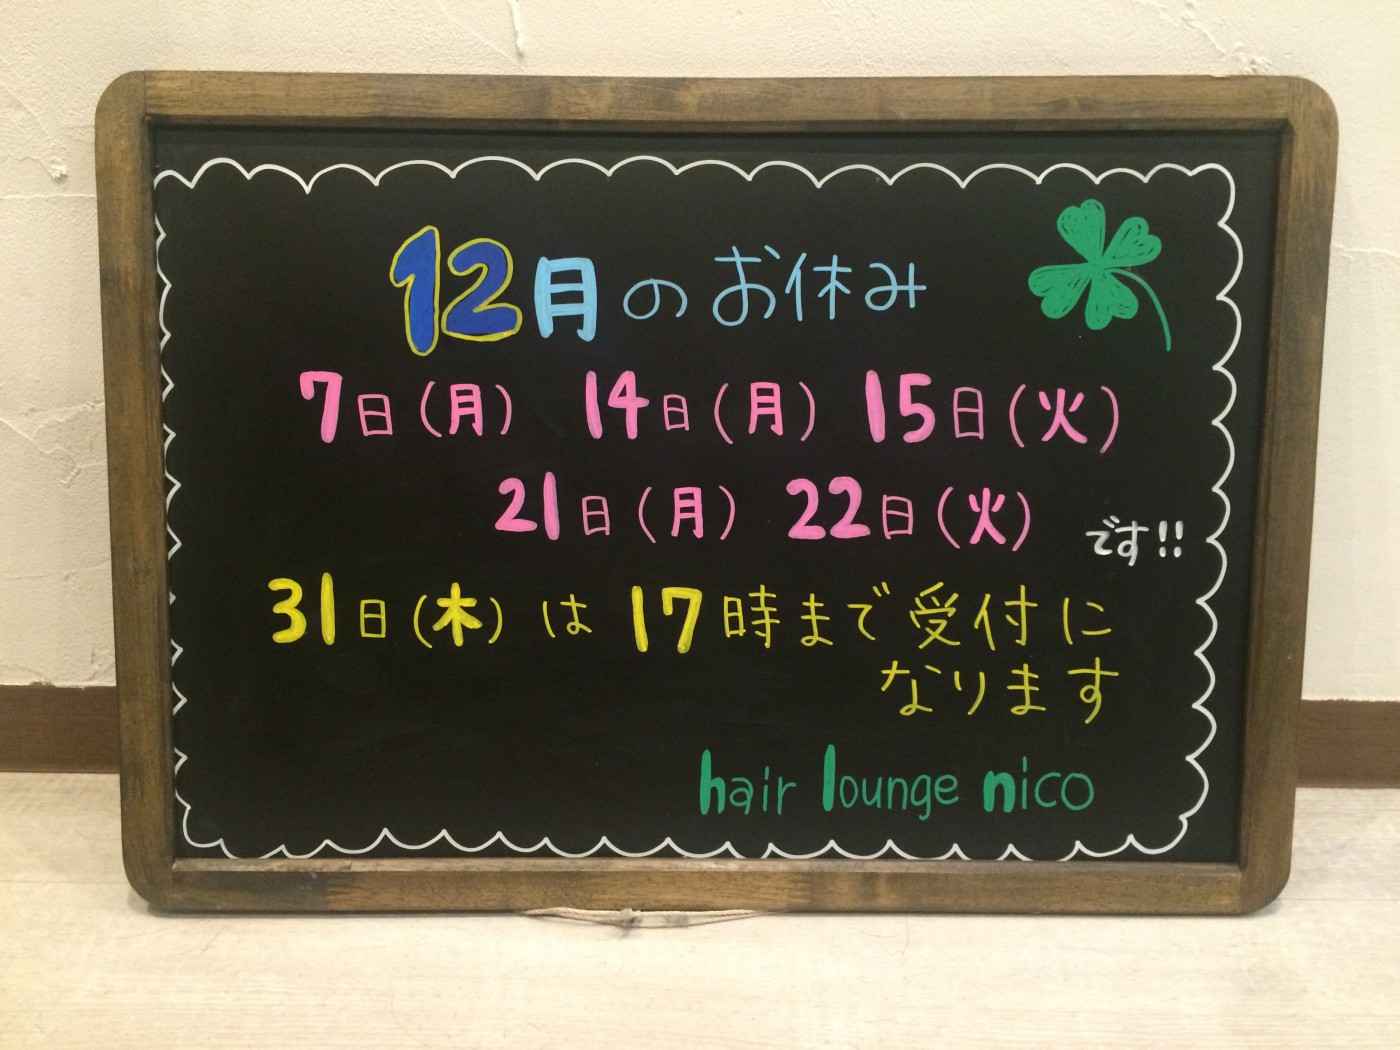 12月のお休み
7日(月) 14日(月) 15日(火)
21日(月) 22日(火) です!!
31日(木) は 17時まで受付に
なります
hair lounge nico